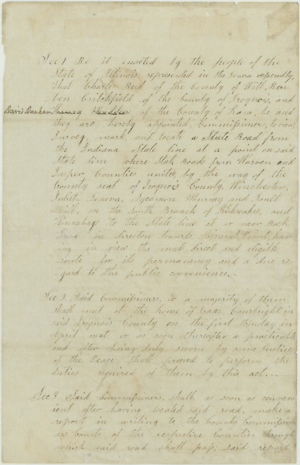 Sec 1 Be it enacted by the people of the
State of Illinois, represented in the General Assembly,
That Charles Reed of the County of Will, Har
Critchfield of the County of Iroquois, and
of the County of Kane, be and
they are hereby appointed Commissioners, to view
Survey, mark and locate a State Road from
the Indiana State line at a point on said
State line where State roads from Warren and
Jasper Counties unite, by the way of the
County seat of Iroquois County, Winchester,
Joliet, Geneva, Sycamore
on the South Branch of Kishwaukee, and
to the State line at or near
in view the most direct and eligible
route for its permanency and a due re
gard to the public convenience.
Sec 2 Said Commissioners, or a majority of them
shall meet at the house of
said Iroquois County on the first Monday in
April next or as soon thereafter as practicable
and after being duly sworn by some Justice
of the Peace shall proceed to perform the
duties required of them by this act.
Sec 3 Said Commissioners, shall as soon as conveni
ent after having located said road, make a
report in writing to the County Commissioners
of the respective Counties through
which said road shall pass, said report